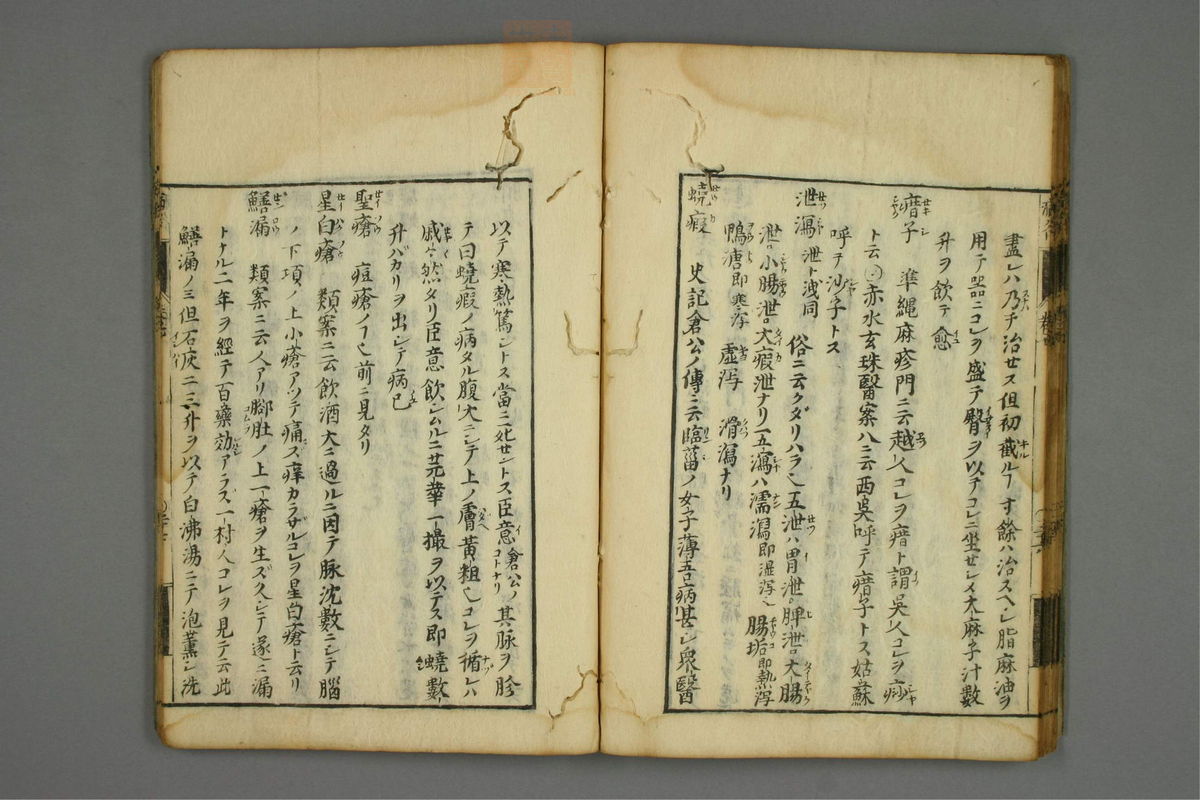 盡レハ乃チ治セス但初截ルヿ寸餘ハ治スヘシ脂麻油ヲ
用テ器ニコレヲ盛テ臀ヲ以テコレニ坐セシメ大麻子汁數
升ヲ飲テ愈
瘄子 準繩麻疹門ニ云越人コレヲ瘄ト謂呉人コレヲ痧
ト云 赤水玄珠醫案ハニ云西呉呼テ瘄子トス姑蘇
呼テ沙子トス
泄瀉 泄ト洩同 俗ニ云クダリハラ也五泄ハ胃泄脾泄大腸
泄小腸泄大瘕泄ナリ五瀉ハ濡瀉即湿泻也腸垢即熱泻
鴨溏即寒泻 虚泻 滑瀉ナリ
蟯瘕 史記倉公ノ傳ニ云臨菑ノ女子薄吾病甚シ衆醫
以テ寒熱篤シトス當ニ死セントス臣意倉公ノコトナリ其脉ヲ胗
テ曰蟯瘕ノ病タル腹大ニシテ上ノ膚黃粗也コレヲ循レハ
戚々然タリ臣意飲シムルニ芫蕐一撮ヲ以テス即蟯數
升バカリヲ出シテ病已
聖瘡 痘瘡ノヿ也前ニ見タリ
星白瘡 類案ニ云飲酒大ニ過ルニ因テ脉沈數ニシテ腦
ノ下項ノ上小瘡アツテ痛ス痒カラザルコレヲ星白瘡ト云リ
鱔漏 類案ニ云人アリ脚肚ノ上一瘡ヲ生ズ久シテ遂ニ漏
トナル二年ヲ經テ百藥効アラズ一村人コレヲ見テ云此
鱔漏ノミ但石灰二三升ヲ以テ白沸湯ニテ泡薰シ洗